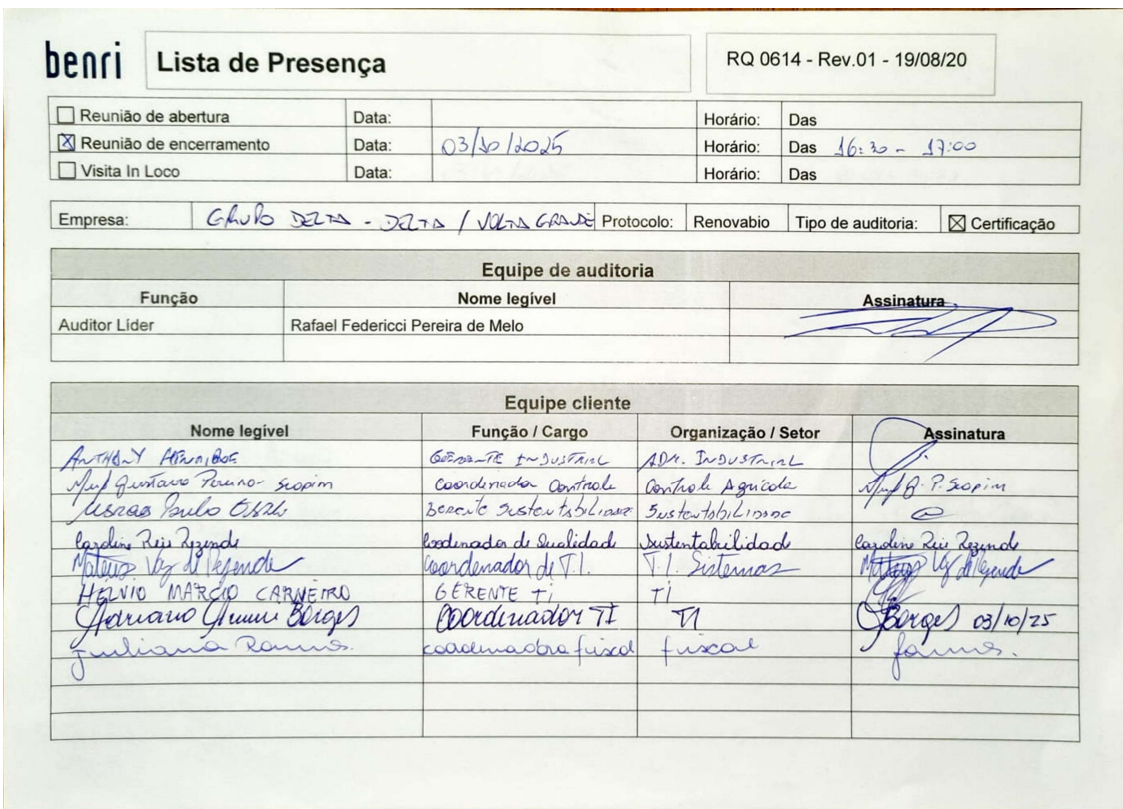 benri Lista de Presença RQ 0614 - Rev.01 - 19/08/20
Reunião de abertura Data: Horário: Das
Reunião de encerramento Data: 03/10/2025 Horário: Das 16:30 - 17:00
Visita In Loco Data: Horário: Das
Empresa: GRUPO DELTA - DELTA / VOLTA GRANDE Protocolo: Renovabio Tipo de auditoria: Certificação
Equipe de auditoria
Função Nome legível Assinatura
Auditor Líder Rafael Federicci Pereira de Melo
Equipe cliente
Nome legível Função / Cargo Organização / Setor Assinatura
ANTHONY GERENTE INDUSTRIAL ADM. INDUSTRIAL
Gustavo Scopim Coordenador Controle Controle Agrícola P. Scopim
Paulo Gerente Sustentabilidade Sustentabilidade
Caroline Reis Rezende Coordenador de Qualidade Sustentabilidade Caroline Reis Rezende
Mateus Vaz de Resende Coordenador de T.I. T.I. Sistemas Mateus Vaz de Resende
HELVIO MARCIO CARNEIRO GERENTE TI TI
Adriano Borges Coordenador TI TI Borges 03/10/25
Juliana Ramos. coordenadora fiscal fiscal